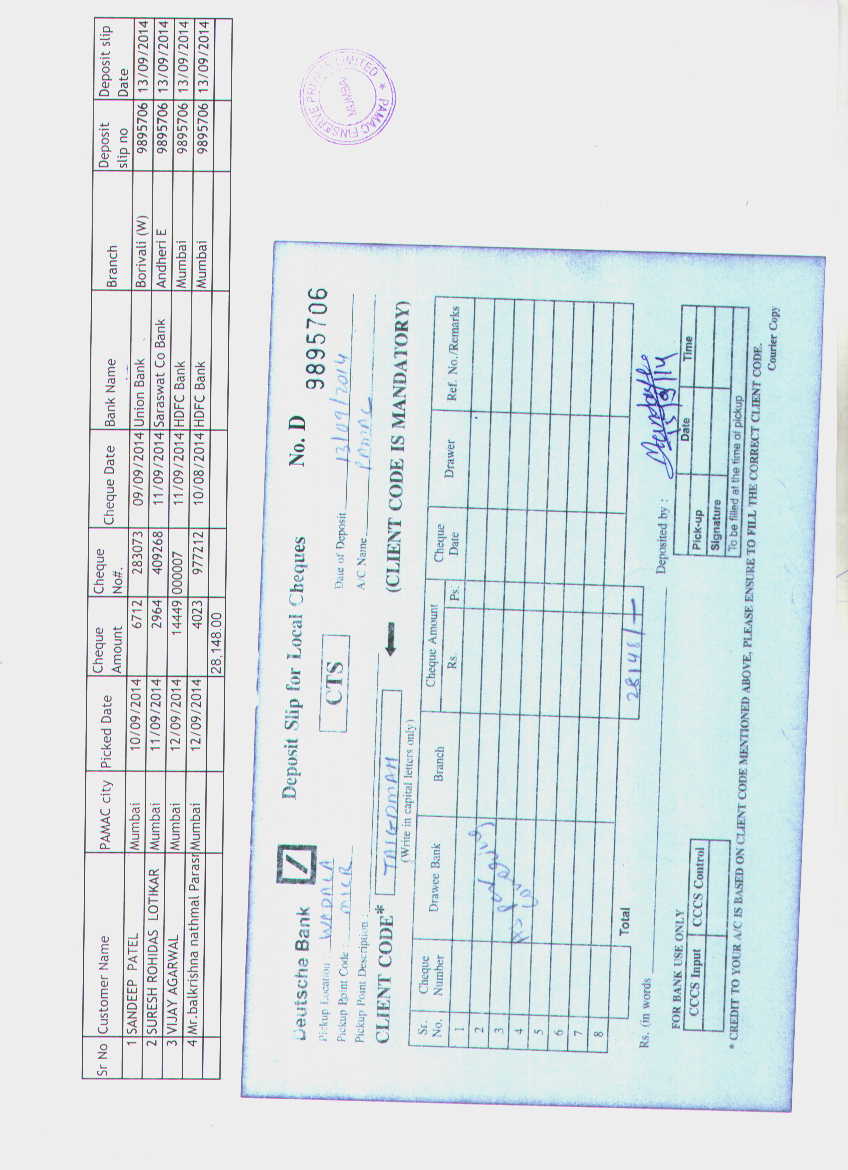 Sr No Customer Name PAMAC city Picked Date Cheque Amount Cheque No#. Cheque Date Bank Name Branch Deposit slip no Deposit slip Date
1 SANDEEP PATEL Mumbai 10/09/2014 6712 283073 09/09/2014 Union Bank Borivali (W) 9895706 13/09/2014
2 SURESH ROHIDAS LOTIKAR Mumbai 11/09/2014 2964 409268 11/09/2014 Saraswat Co Bank Andheri E 9895706 13/09/2014
3 VIJAY AGARWAL Mumbai 12/09/2014 14449 000007 11/09/2014 HDFC Bank Mumbai 9895706 13/09/2014
4 Mr.balkrishna nathmal Parasr Mumbai 12/09/2014 4023 977212 10/08/2014 HDFC Bank Mumbai 9895706 13/09/2014
28,148.00
PAMAC FINSERVE PRIVATE LIMITED
MUMBAI
Deutsche Bank Deposit Slip for Local Cheques No. D 9895706
Pickup Location WADALA CTS Date of Deposit 13/09/2014
Pickup Point Code : MICR A/C Name PAMAC
Pickup Point Description :
CLIENT CODE* (CLIENT CODE IS MANDATORY)
(Write in capital letters only)
Sr. No. Cheque Number Drawee Bank Branch Cheque Amount Rs. Ps. Cheque Date Drawer Ref. No./Remarks
1
2
3
4 As
5
6
7
8
Total 28148/-
Rs. (in words Deposited by :
13/9/14
FOR BANK USE ONLY
CCCS Input CCCS Control
Pick-up Date Time
Signature
To be filled at the time of pickup
* CREDIT TO YOUR A/C IS BASED ON CLIENT CODE MENTIONED ABOVE, PLEASE ENSURE TO FILL THE CORRECT CLIENT CODE.
Courier Copy